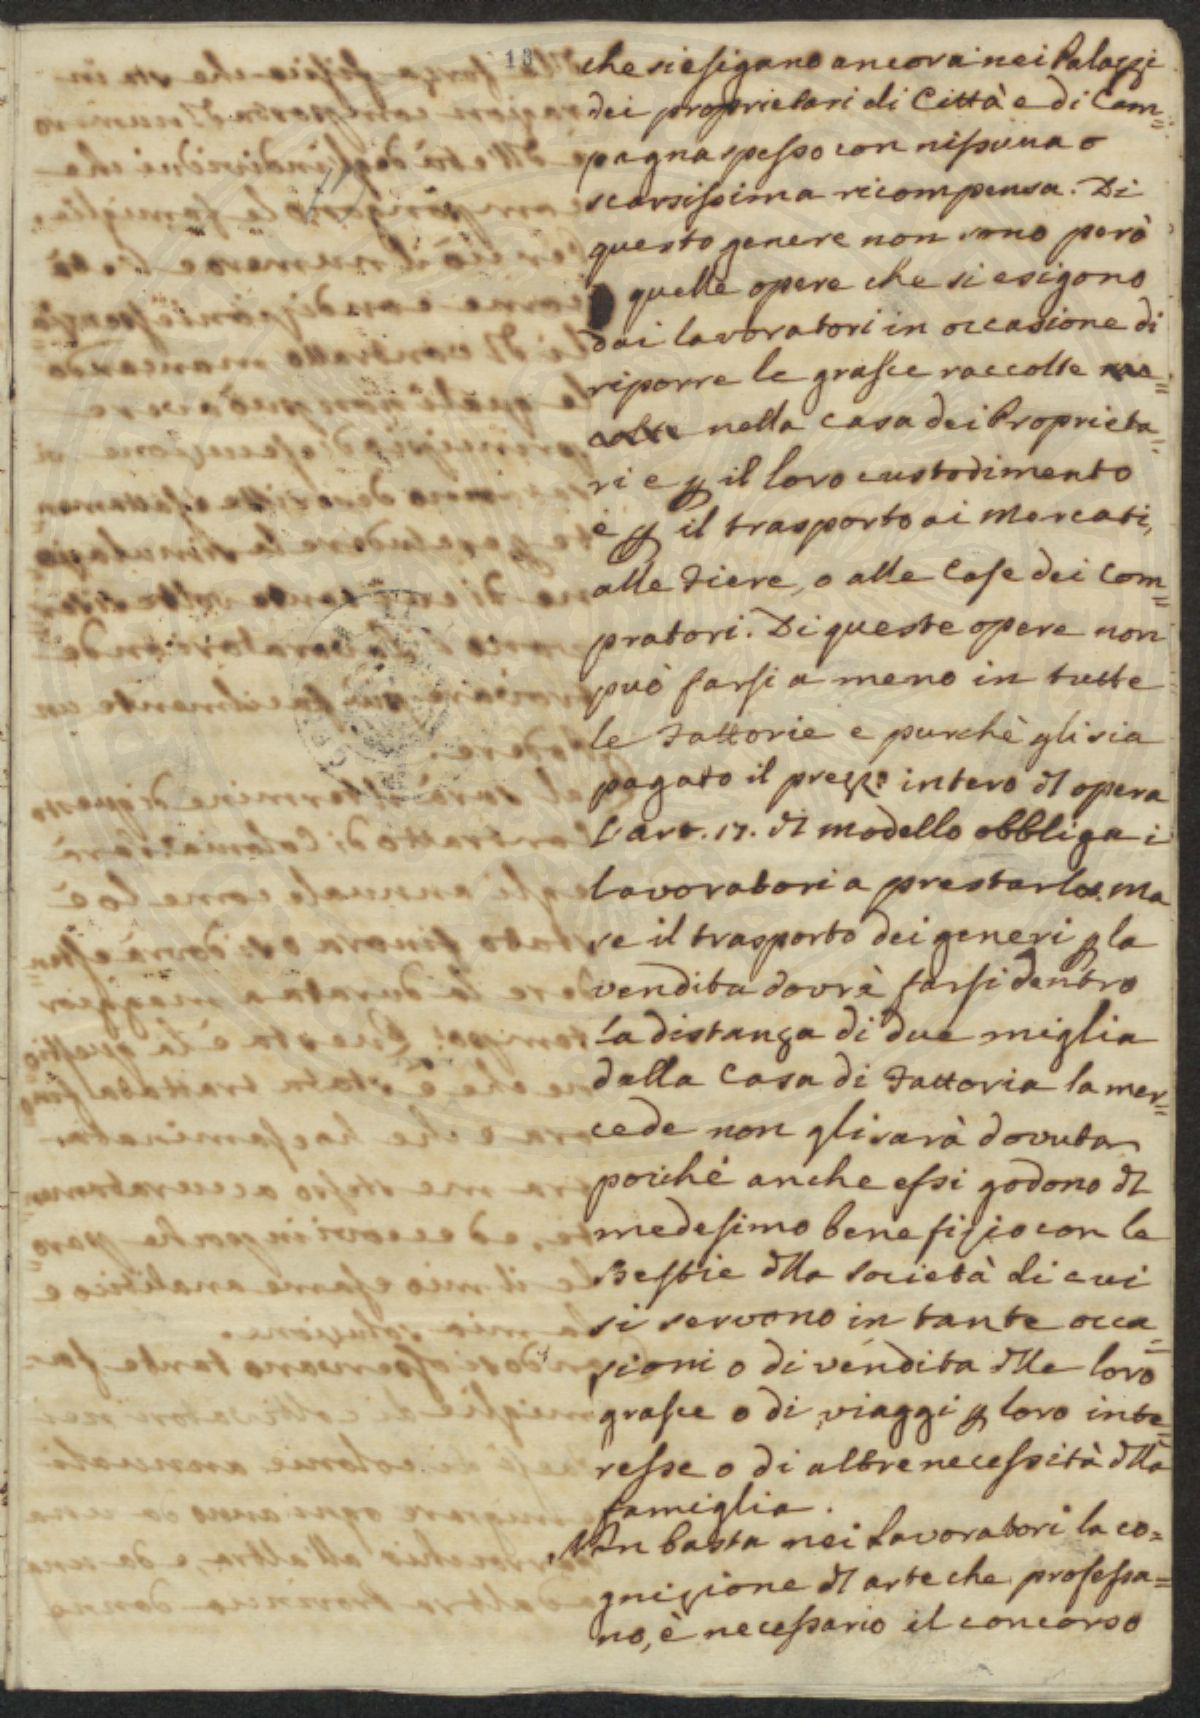 13
che si esigano ancora nei Palazzi
dei proprietari di Città e di Cam=
pagna spesso con nissuna o
scarsissima ricompensa. Di
questo genere non sono però
quelle opere che si esigono
dai lavoratori in occasione di
riporre le grasce raccolte rac=
colte nella casa dei Proprieta=
ri e p il loro custodimento
e p il trasporto ai Mercati,
alle Fiere, o alle Case dei Com=
pratori. Di queste opere non
può farsi a meno in tutte
le Fattorie e purchè gli sia
pagato il prezzo intero dl opera
l'art. 17. dl modello obbliga i
lavoratori a prestarle. Ma
se il trasporto dei generi p la
vendita dovrà farsi dentro
la distanza di due miglia
dalla Casa di Fattoria la mer=
cede non gli sarà dovuta
poichè anche essi godono dl
medesimo benefizio con le
Bestie dlla società di cui
si servono in tante occa=
sioni o di vendita dlle loro
grasce o di viaggi p loro inte=
resse o di altre necessità dlla
famiglia.
Non basta nei Lavoratori la co=
gnizione dl arte che professa=
no, è necessario il concorso